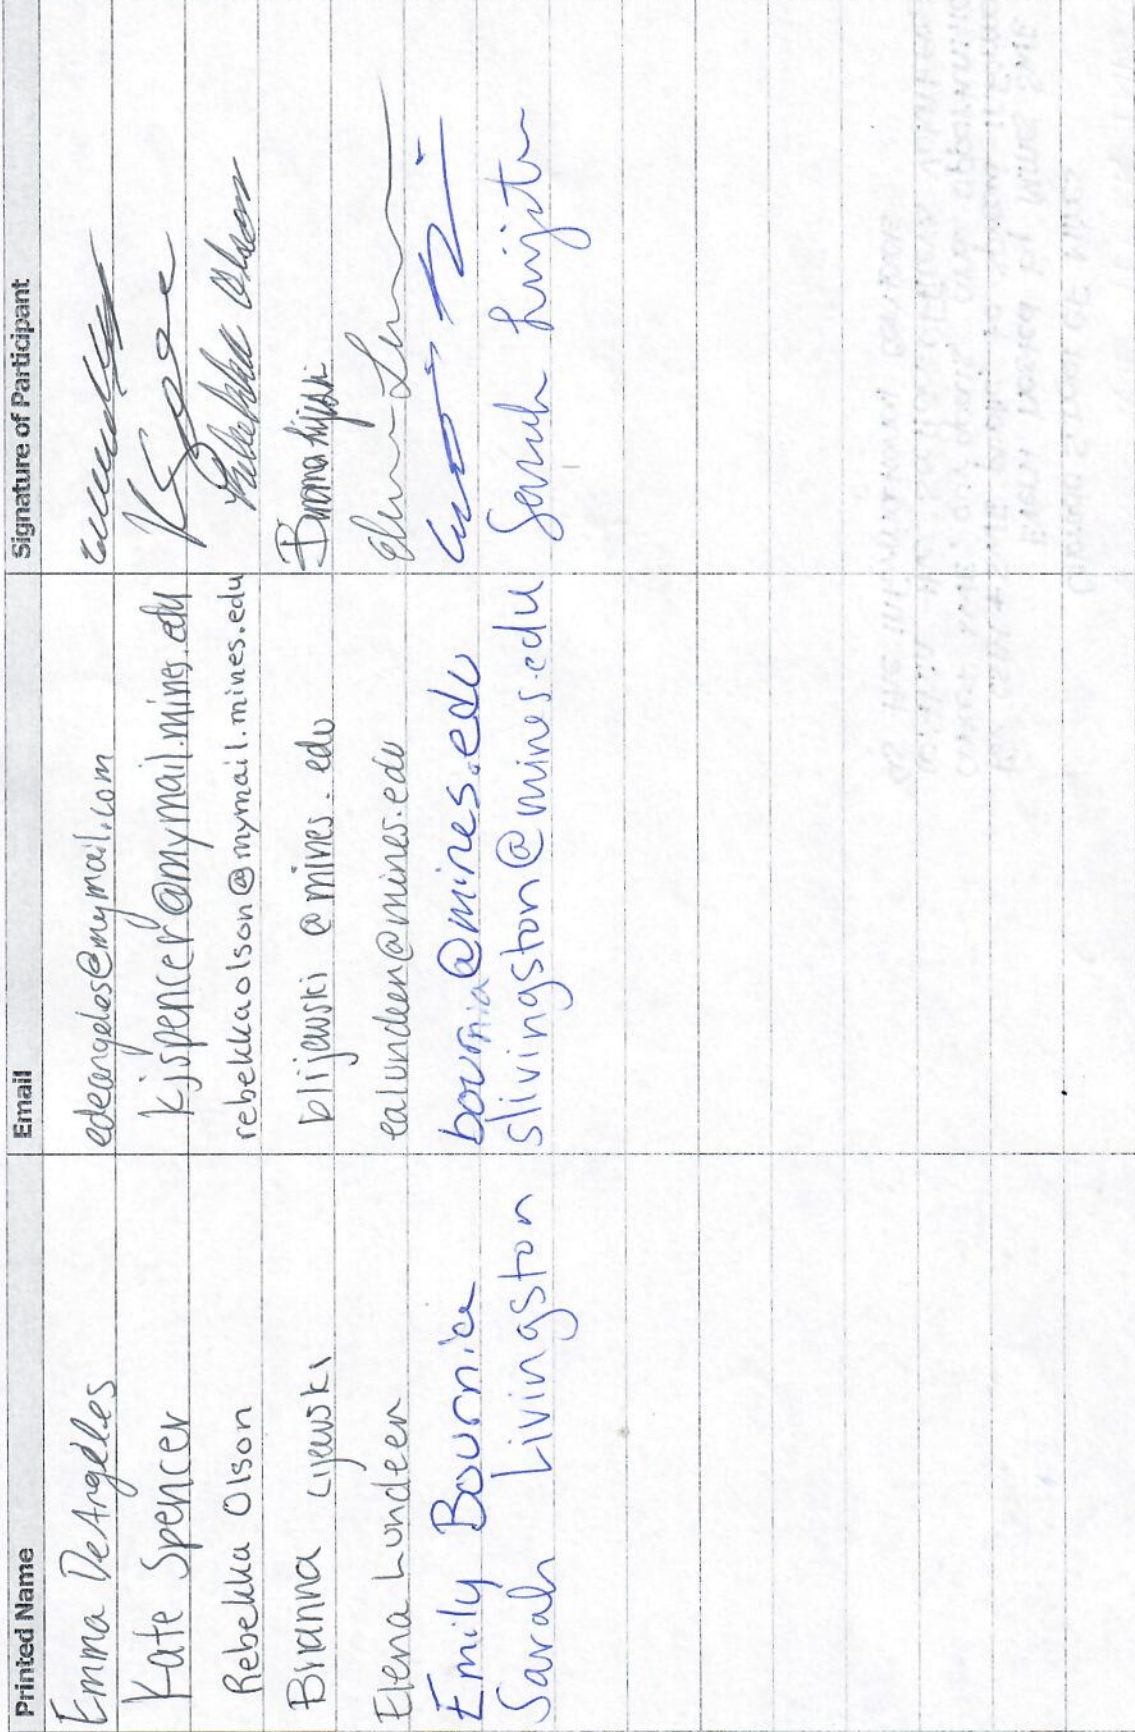 Printed Name Email Signature of Participant
Emma DeAngeles edeangeles@mymail.com
Kate Spencer kjspencer@mymail.mines.edu
Rebekka Olson rebekkaolson@mymail.mines.edu Rebekka Olson
Brianna Lijewski blijewski@mines.edu Brianna Lijewski
Elena Lundeen ealundeen@mines.edu
Emily Bournia bournia@mines.edu
Sarah Livingston slivingston@mines.edu Sarah